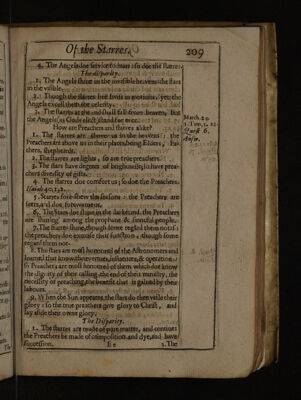 Of the Starres.
209
4. The Angels doe service to man : so doe the starres.
The disparity.
1. The Angels shine in the invisible heavens: the stars
in the visible.
2. Though the starres bee swift in motions, yet the
Angels excell them in celerity.
3. The starres at the end shall fall from heaven, but
the Angels, as Gods elect, stand for ever.
How are Preachers and starres alike?
1. The starres are above us in the heavens : the
Preachers are above us in their places, being Elders, Fa-
thers, shepheards.
2. The starres are lights, so are true preachers.
3. The stars have degrees of brightnesse, so have prea-
chers diversity of gifts.
4. The starres doe comfort us; so doe the Preachers.
Isaiah 40.1,2.
5. Starres fore-shew the seasons : the Preachers are
seers, and doe forewarne us.
6. The Stars doe shine in the darke and the Preachers
are shining among the prophane & sinnefull people.
7. The starres shine, though some regard them not: so
the preachers doe exercise their function, though some
regard them not.
8. The stars are most honored of the Astronomers and
learned that know their vertues, influences, & operation :
so Preachers are most honoured of them which do know
the dignity of their calling, the end of their ministry, the
necessity of preaching, the benefit that is gained by their
labours.
9. When the Sun appeares, the stars do then vaile their
glory : so the true preachers give glory to Christ, and
lay aside their owne glory.
The Disparity.
1. The starres are made of pure matter, and continue:
the Preachers be made of composition, and dye, and have
succession.
Ee
2. The
March. 24.
1. Tim. 5. 21.
Quest 6.
Answ.